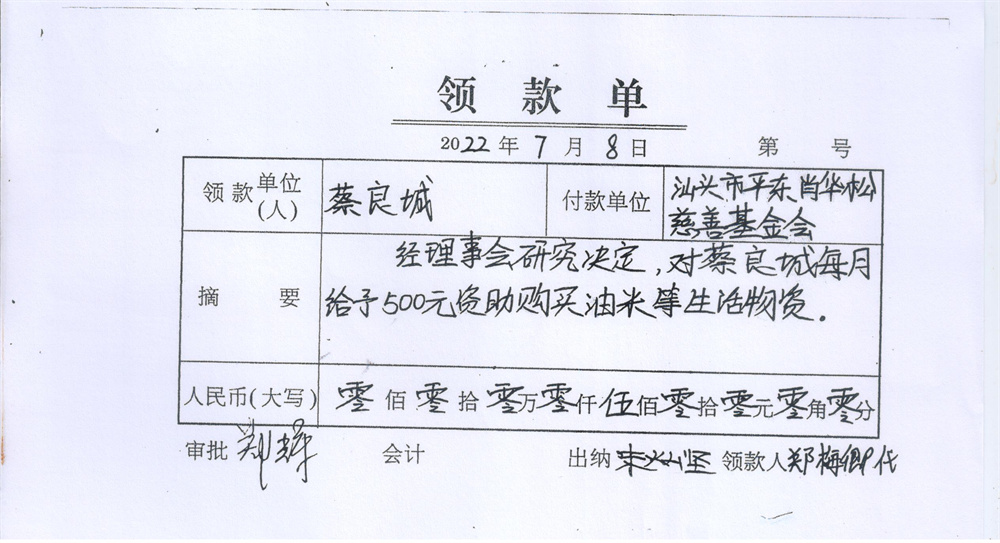 领款单
2022年7月8日 第 号
领款单位(人) 蔡良城 付款单位 汕头市平东肖华松慈善基金会
经理事会研究决定,对蔡良城每月
摘要 给予500元资助购买油米等生活物资.
人民币(大写) 零佰零拾零万零仟伍佰零拾零元零角零分
审批 郑 会计 出纳 领款人郑梅卿代